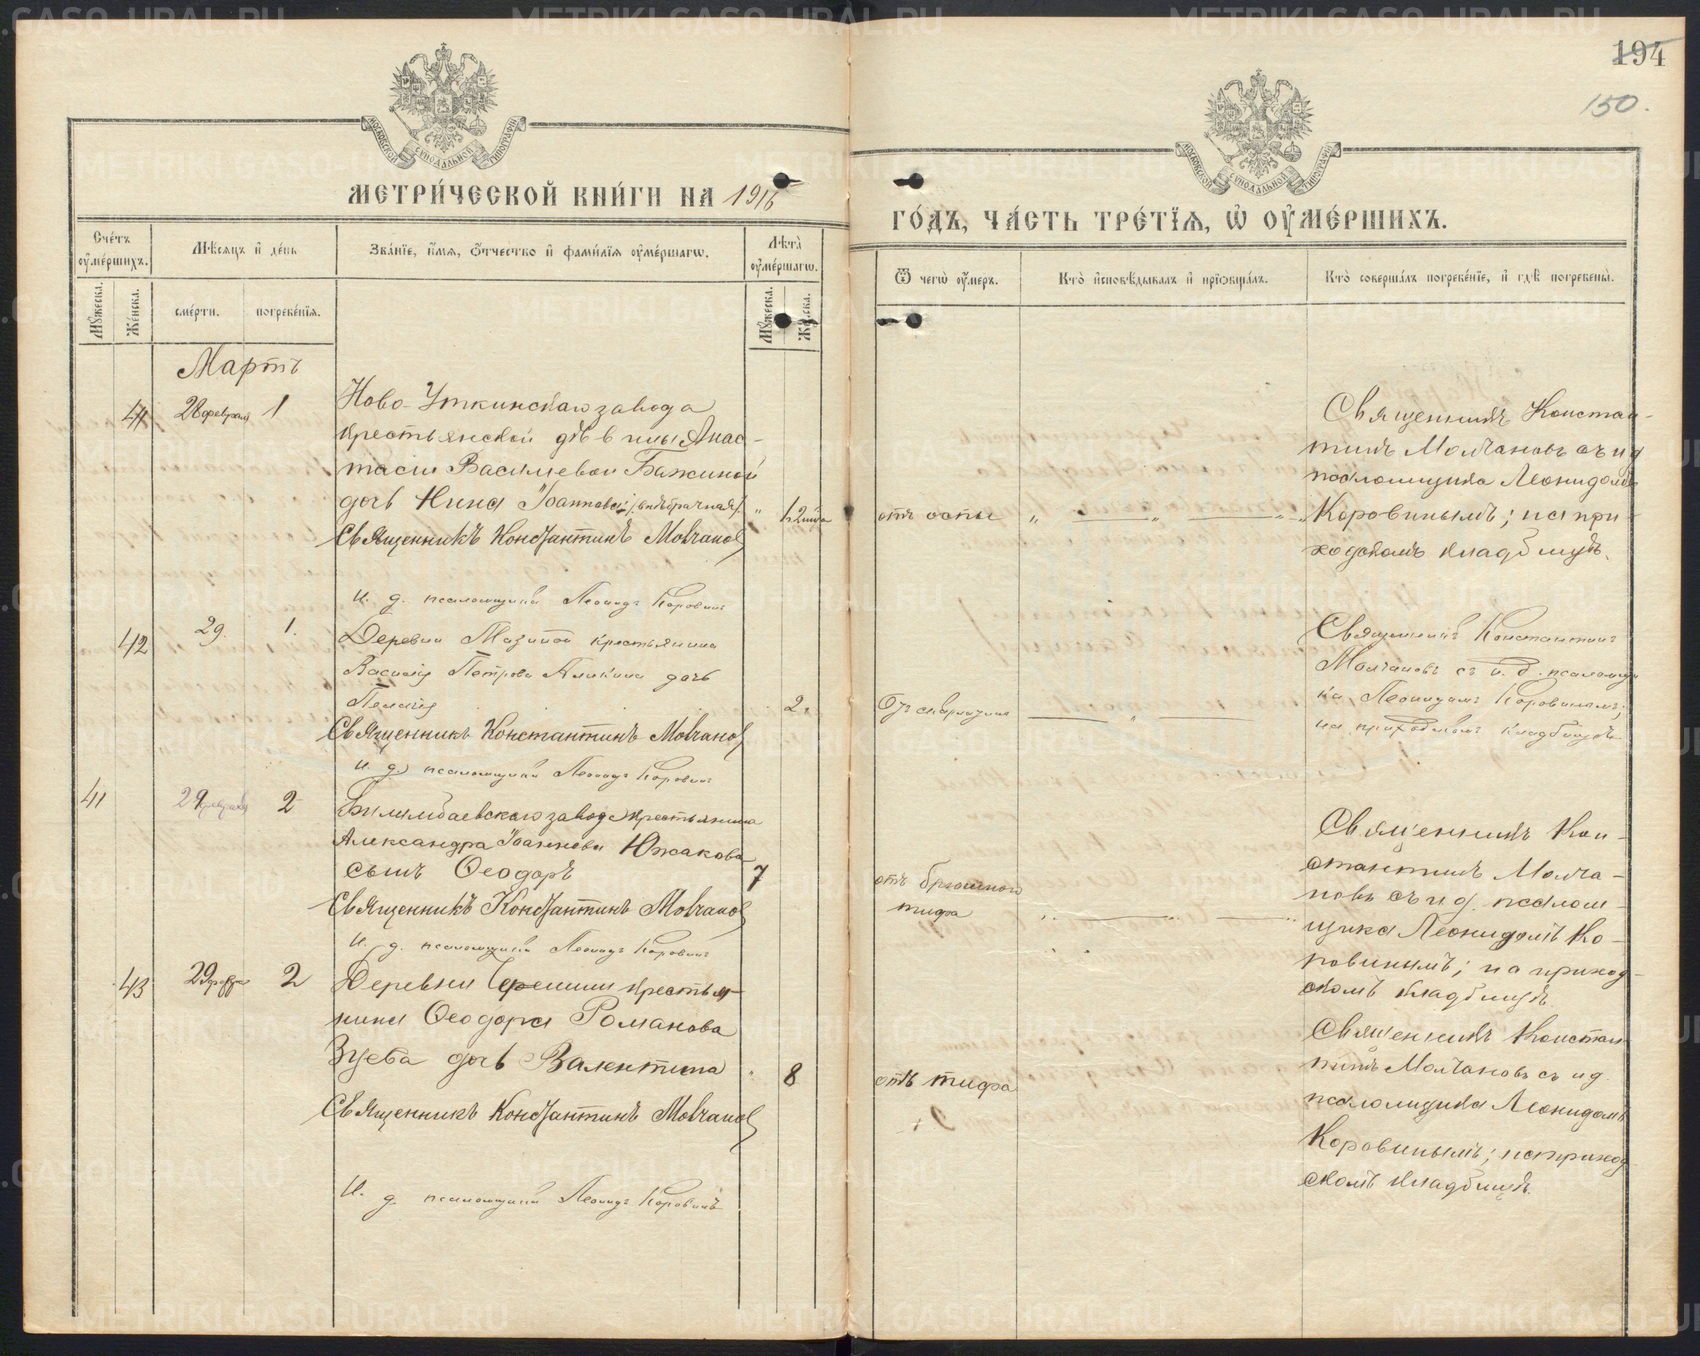 194
150.
МЕТРИ́ЧЕСКОЙ КНИ́ГИ НА 1916
ГО́ДЪ, ЧА́СТЬ ТРЕ́ТІѦ, Ѡ҆ ОУ҆МЕ́РШИХЪ.
Сче́тъ оу҆ме́ршихъ.
Мꙋ́жеска.
Же́нска.
Мѣ́сѧцъ и҆ де́нь
сме́рти.
погребе́нїѧ.
Зва́нїе, и҆́мѧ, ѻ҆́тчество и҆ фами́лїѧ оу҆ме́ршагѡ.
Лѣта̀ оу҆ме́ршагѡ.
Мꙋ́жеска.
Же́нска.
Ѿ чегѡ̀ оу҆́меръ.
Кто̀ и҆сповѣ́дывалъ и҆ прїѡбща́лъ.
Кто̀ соверша́лъ погребе́нїе, и҆ гдѣ̀ погребены̀.
Мартъ
41
28 февраля
1
Ново-Уткинскаго завода
крестьянской дѣвицы Анас-
тасіи Васильевой Бажиной
дочь Нина Іоаннова; (внѣбрачная).
Священникъ Константинъ Молчановъ
И. д. псаломщика Леонидъ Коровинъ
отъ оспы
Священникъ Констан-
тинъ Молчановъ съ и д
псаломщика Леонидомъ
Коровинымъ; на при-
ходскомъ кладбищѣ.
42
29.
1.
Деревни Мазиной крестьянина
Василія Петрова Аликина дочь
Пелагія
Священникъ Константинъ Молчановъ
И. д. псаломщика Леонидъ Коровинъ
2.
Отъ скарлатины
Священникъ Константинъ
Молчановъ съ и. д. псаломщи
ка Леонидомъ Коровинымъ;
на приходскомъ кладбищѣ.
41
29 февраля
2
Билимбаевскаго завода крестьянина
Александра Іоаннова Южакова
сынъ Ѳеодоръ
Священникъ Константинъ Молчановъ
И. д. псаломщика Леонидъ Коровинъ
7
отъ брюшного
тифа
Священникъ Кон-
стантинъ Молча-
новъ съ и д. псалом-
щика Леонидомъ Ко-
ровинымъ; на приход-
скомъ кладбищѣ.
43
29 февра
2
Деревни Черемши крестья-
нина Ѳеодора Романова
Зуева дочь Валентина
Священникъ Константинъ Молчановъ
И. д. псаломщика Леонидъ Коровинъ
8
отъ тифа
Священникъ Констан
тинъ Молчановъ съ и д
псаломщика Леонидомъ
Коровинымъ; на приход
скомъ кладбищѣ.
METRIKI.GASO-URAL.RU